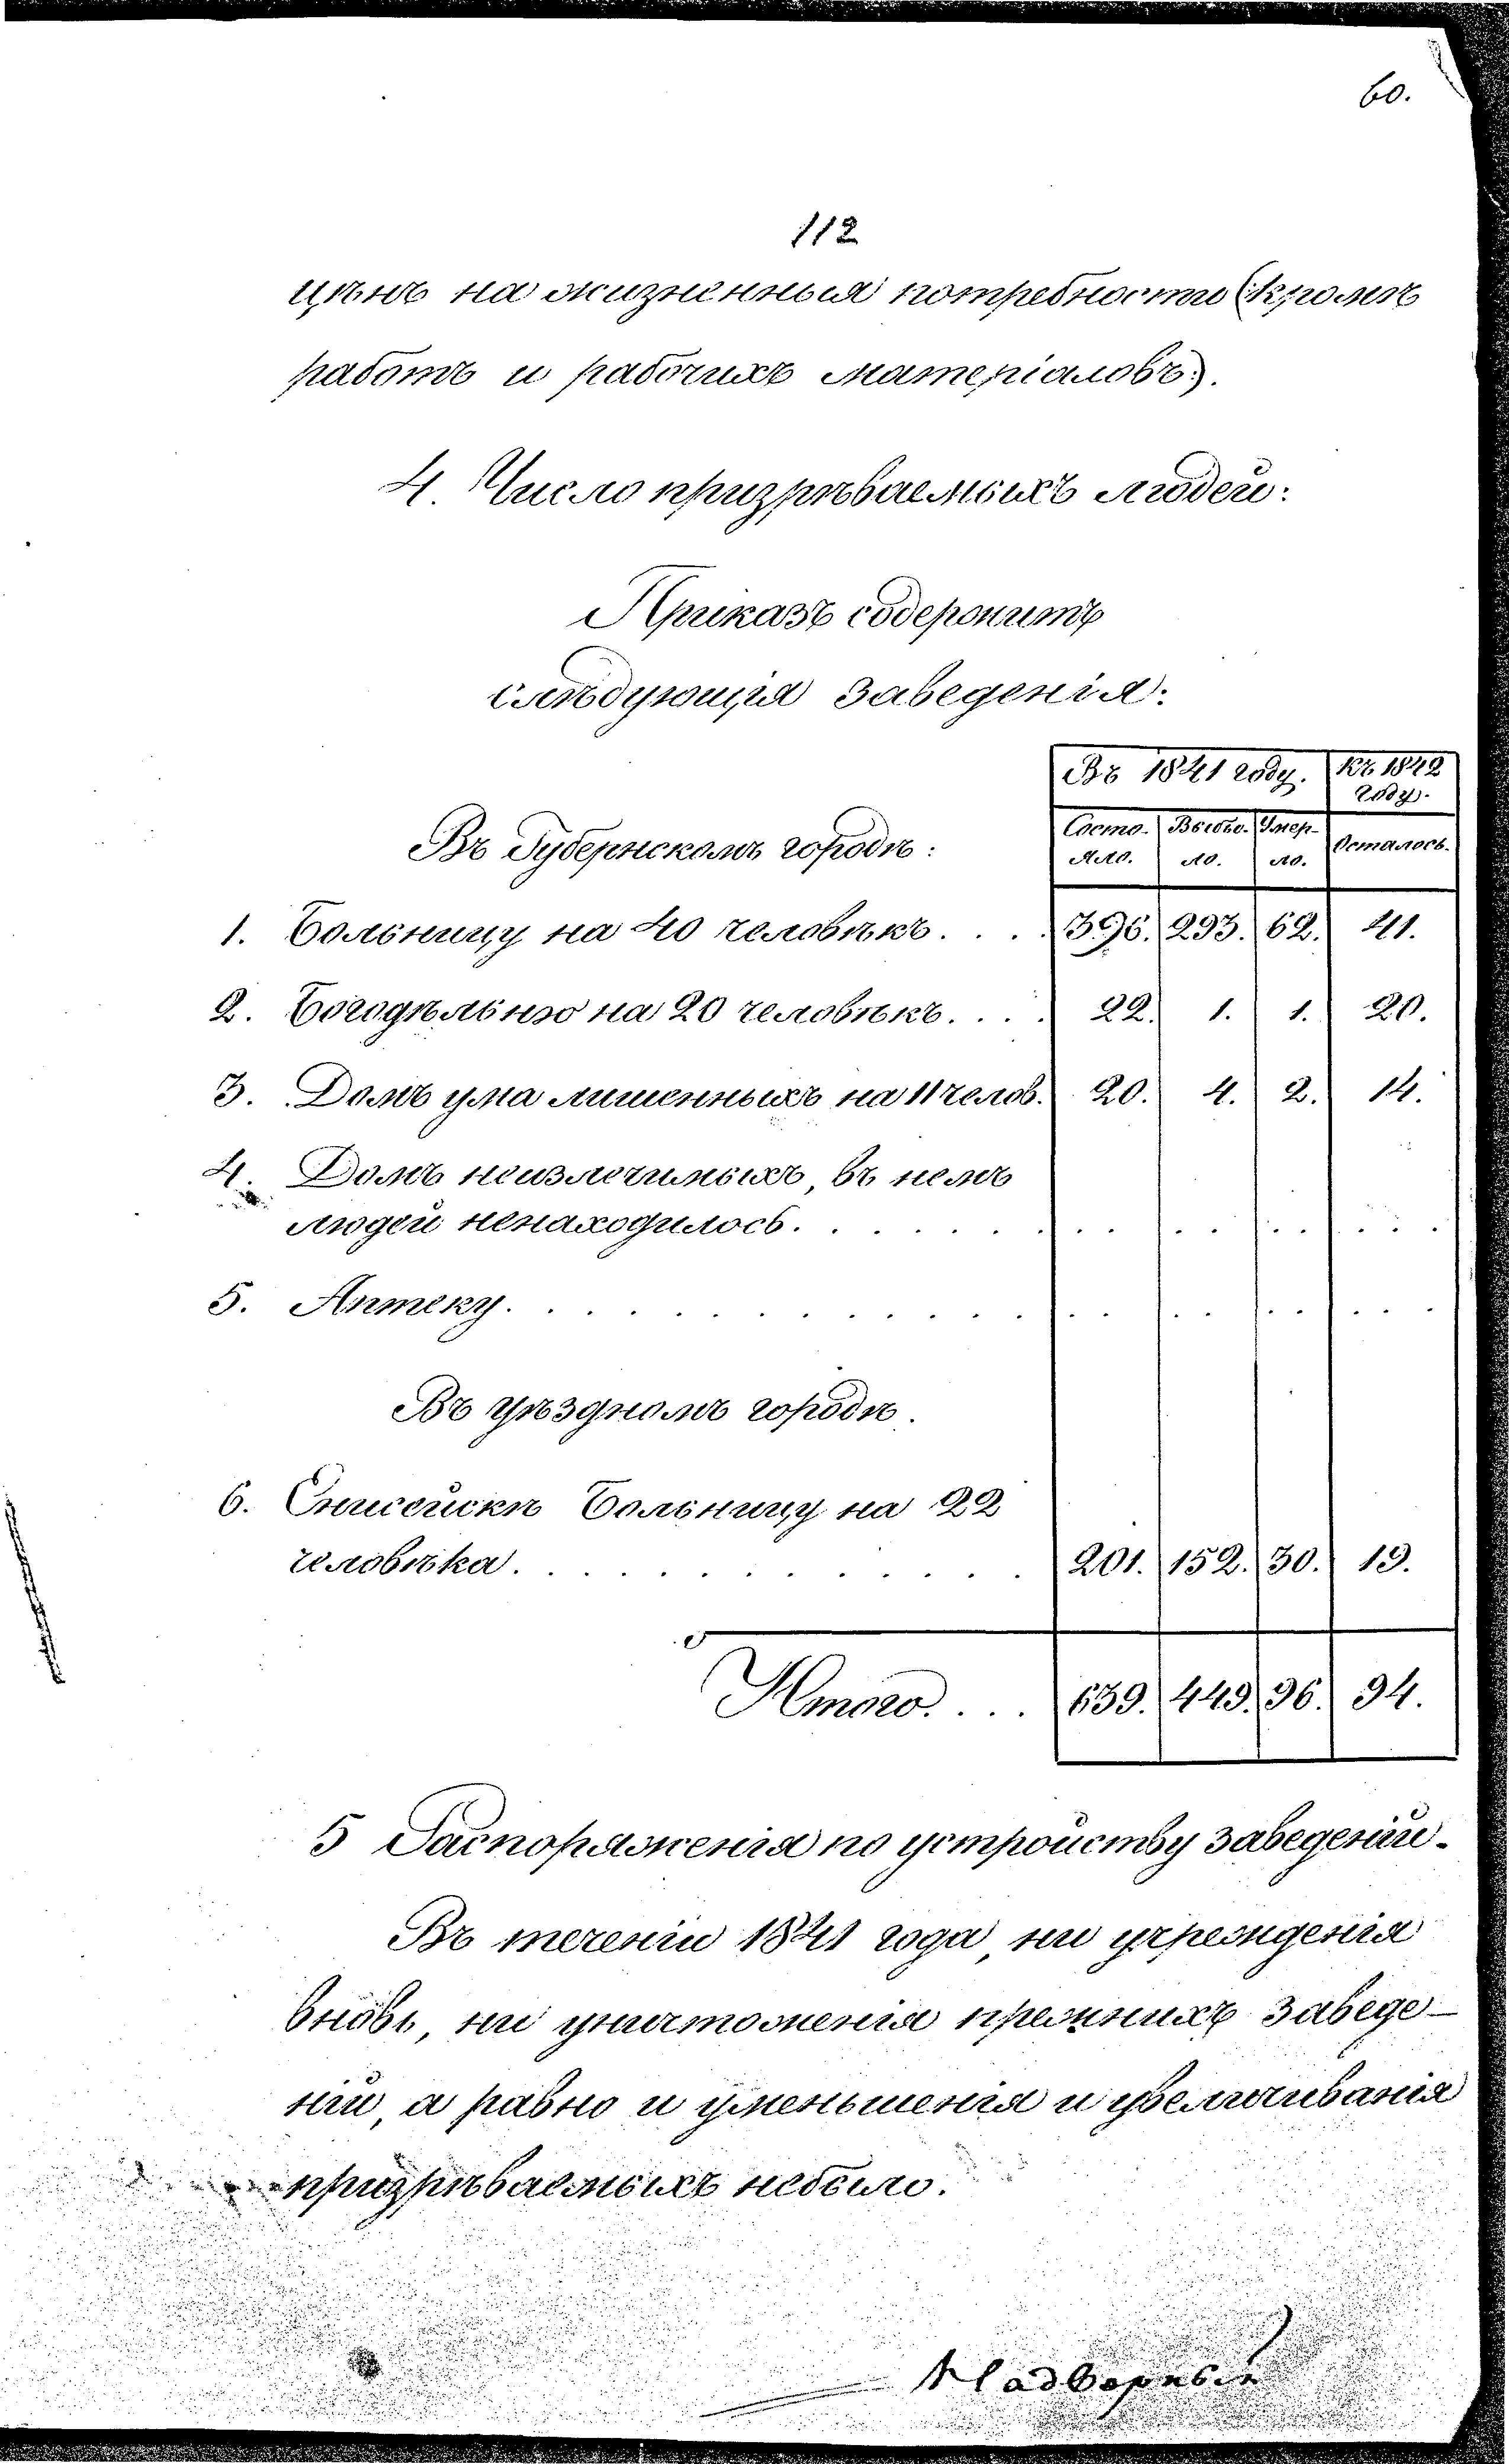 60.
112
цѣнъ на жизненныя потребности (:кромѣ
работъ и рабочихъ матеріаловъ:).
4. Число призрѣваемыхъ людей:
Приказъ содержитъ
слѣдующія заведенія:
Въ 1841 году. Къ 1842
году.
Въ Губернскомъ городѣ: Состо- Выбы- Умер- Осталось.
яло. ло. ло.
1. Больницу на 40 человѣкъ.... 396. 293. 62. 41.
2. Богодѣльню на 20 человѣкъ.... 22. 1. 1. 20.
3. Домъ ума лишенныхъ на 11 челов. 20. 4. 2. 14.
4. Домъ неизлечимыхъ, въ немъ
людей ненаходилось.
5. Аптеку.
Въ уѣздномъ городѣ.
6. Енисейскѣ Больницу на 22
человѣка. 201. 152. 30. 19.
Итого.... 639. 449. 96. 94.
5 Распоряженія по устройству заведеній.
Въ теченіи 1841 года, ни учрежденія
вновь, ни уничтоженія прежнихъ заведе-
ній, а равно и уменьшенія и увеличиванія
призрѣваемыхъ небыло.
Надворный